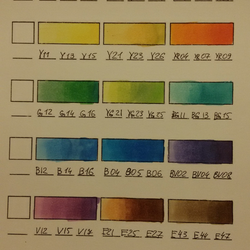 Y11 Y13 Y15 Y21 Y23 Y26 YR04 YR07 YR09
G12 G14 G16 YG21 YG23 YG25 BG11 BG13 BG15
B12 B14 B16 B04 B05 B06 BV02 BV04 BV08
V12 V15 V17 E21 E25 E27 E43 E44 E47